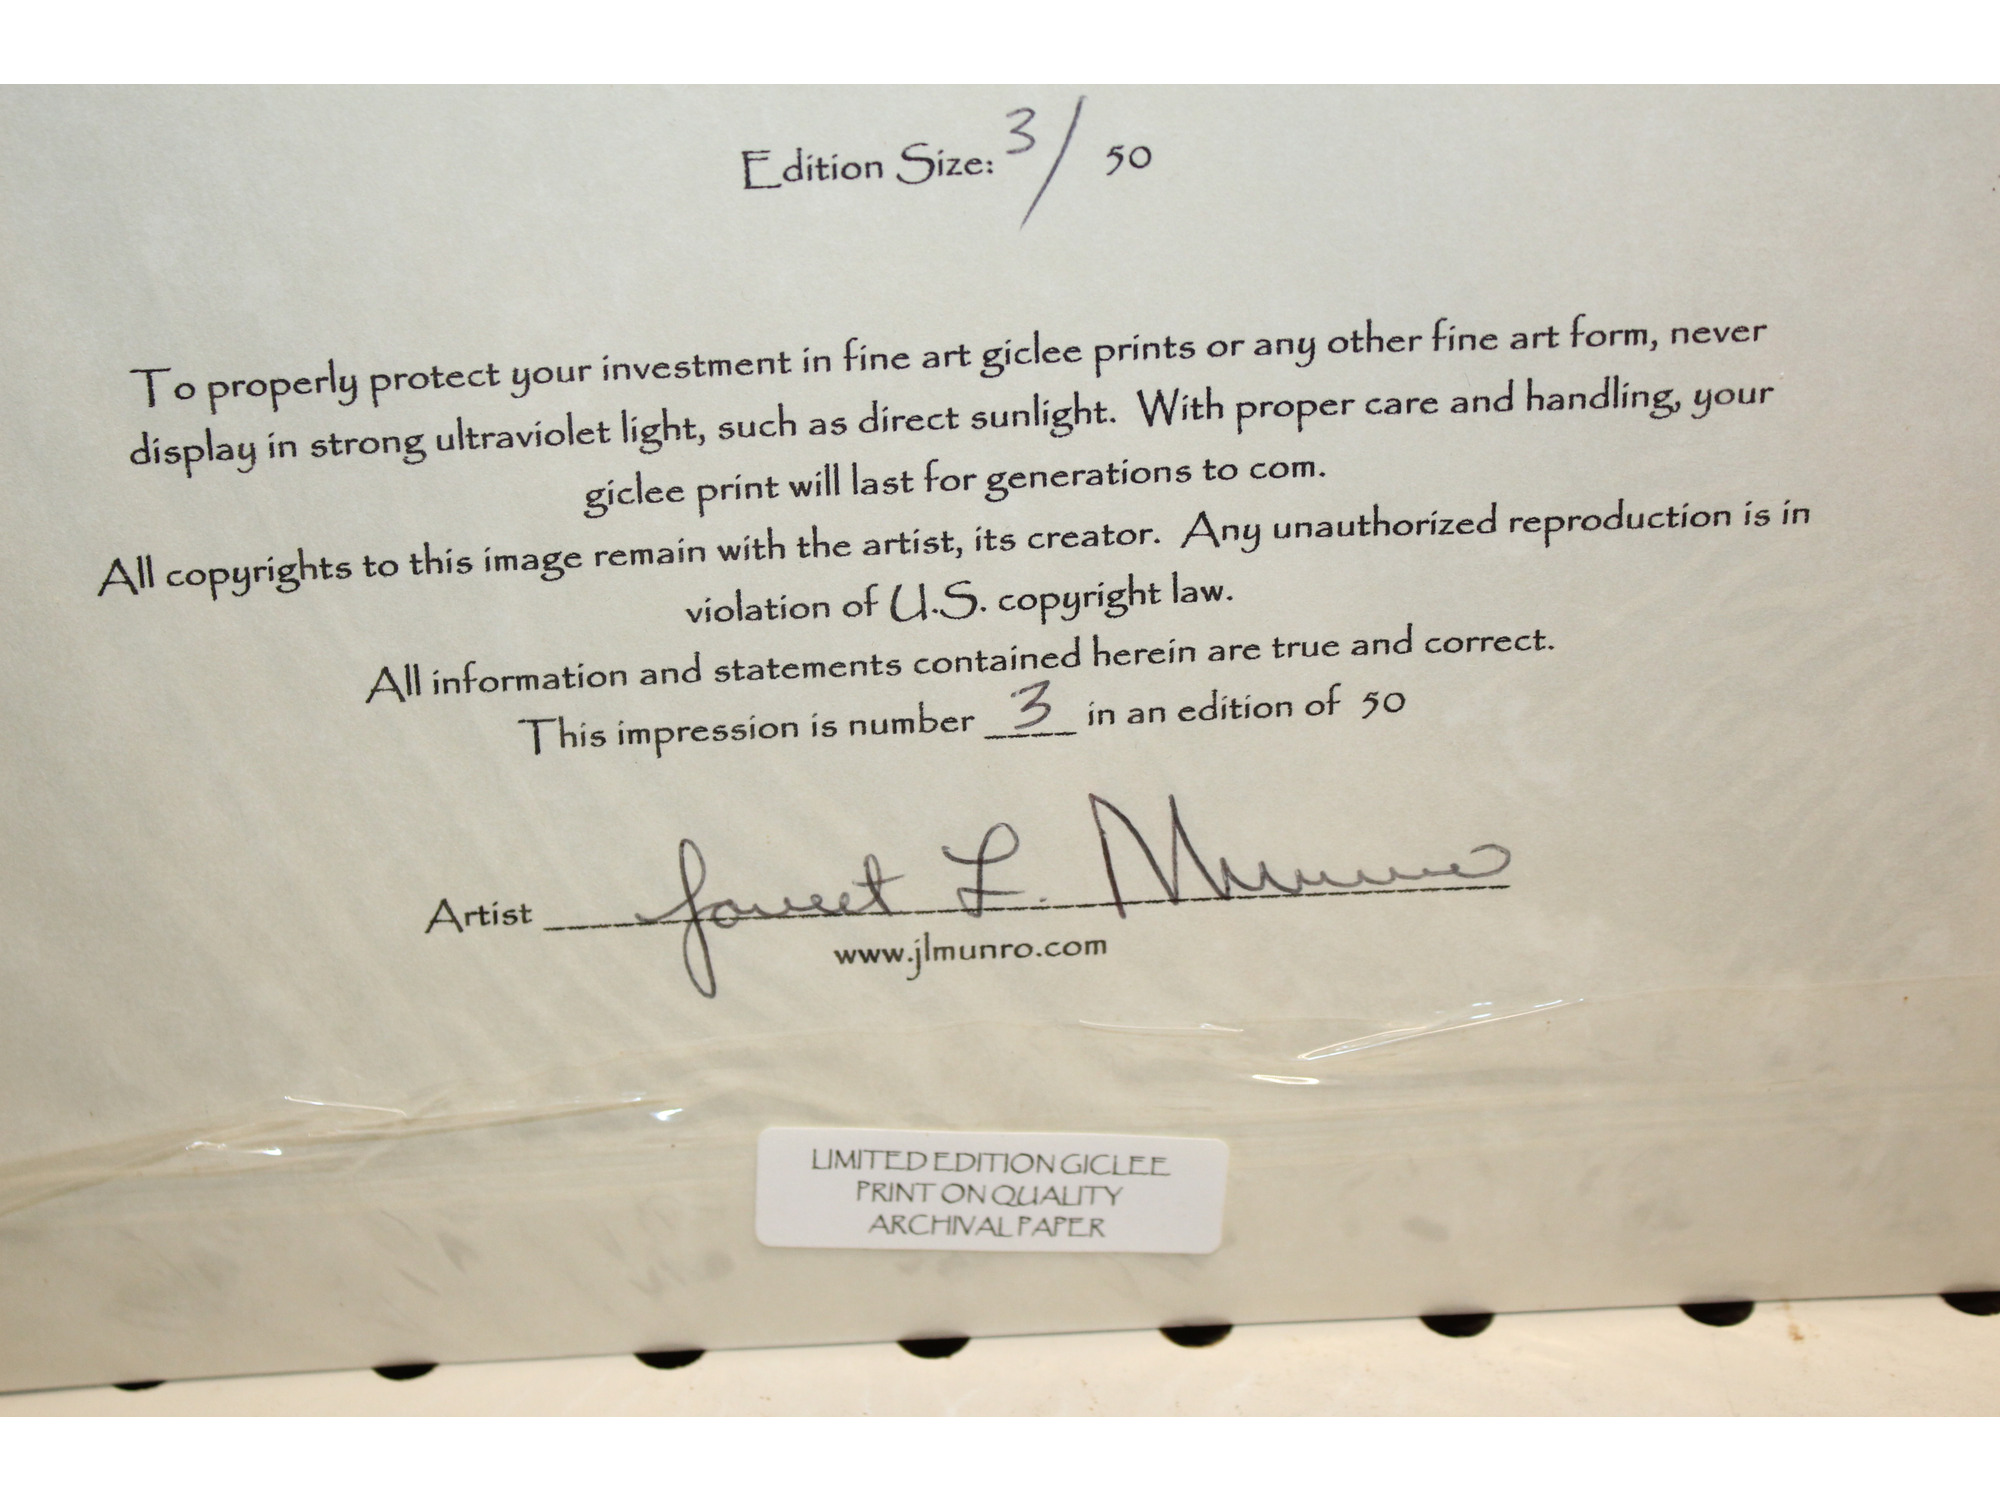 Edition Size: 3/ 50
To properly protect your investment in fine art giclee prints or any other fine art form, never
display in strong ultraviolet light, such as direct sunlight. With proper care and handling, your
giclee print will last for generations to com.
All copyrights to this image remain with the artist, its creator. Any unauthorized reproduction is in
violation of U.S. copyright law.
All information and statements contained herein are true and correct.
This impression is number 3 in an edition of 50
Artist Janet L. Munro
www.jlmunro.com
LIMITED EDITION GICLEE
PRINT ON QUALITY
ARCHIVAL PAPER